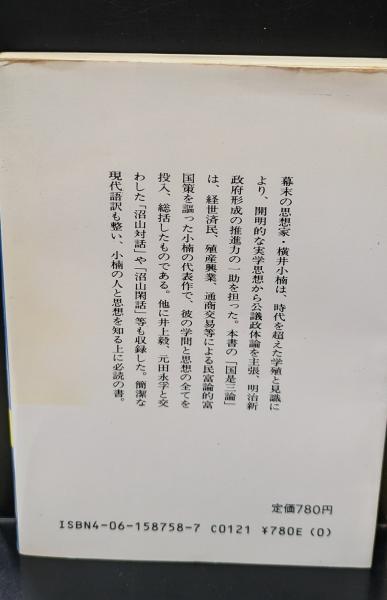 幕末の思想家・横井小楠は、時代を超えた学殖と見識に
より、開明的な実学思想から公議政体論を主張、明治新
政府形成の推進力の一助を担った。本書の「国是三論」
は、経世済民、殖産興業、通商交易等による民富論的富
国策を謳った小楠の代表作で、彼の学問と思想の全てを
投入、総括したものである。他に井上毅、元田永孚と交
わした「沼山対話」や「沼山閑話」等も収録した。簡潔な
現代語訳も整い、小楠の人と思想を知る上に必読の書。
定価780円
ISBN4-06-158758-7 C0121 ¥780E (0)